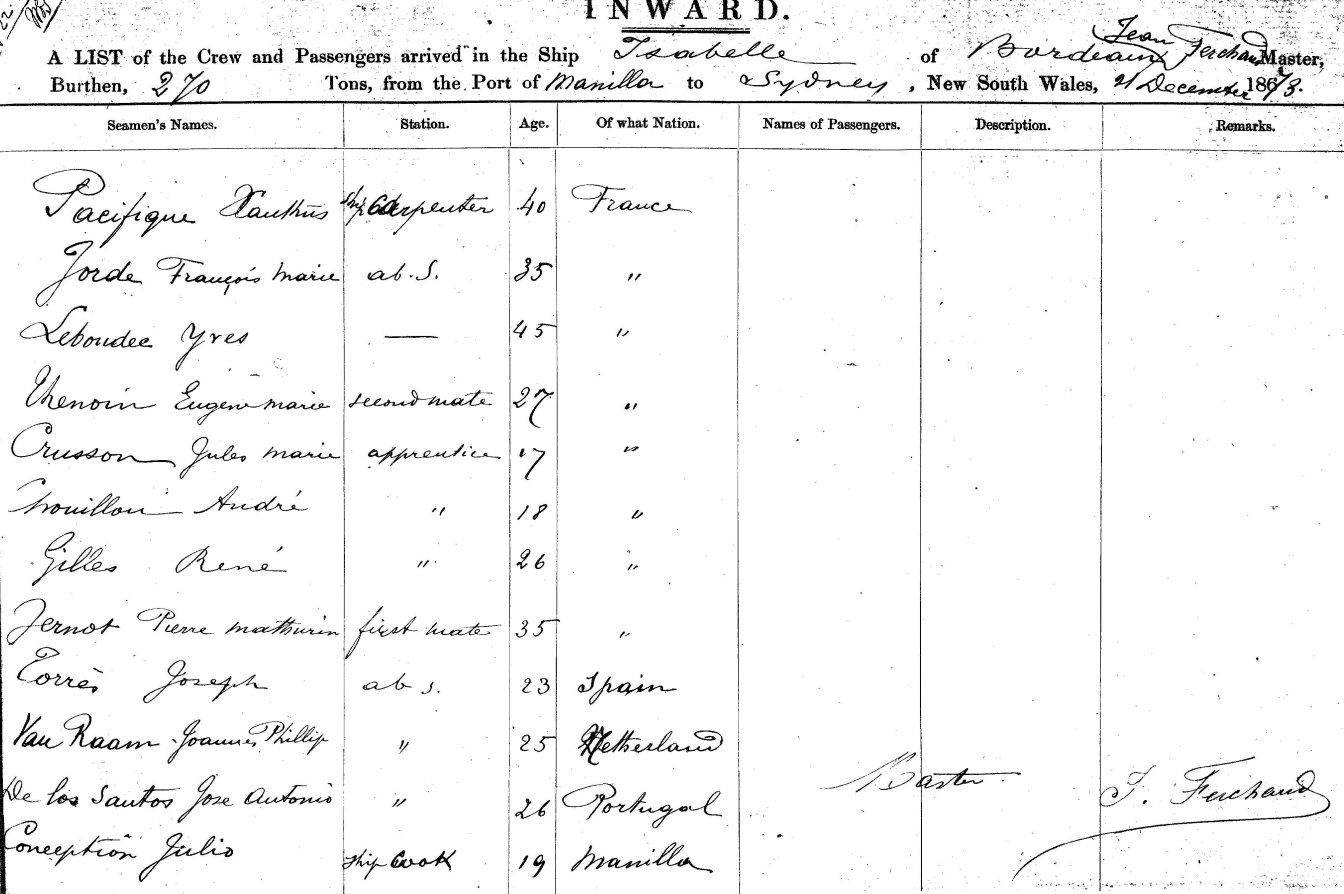 22
INWARD.
A LIST of the Crew and Passengers arrived in the Ship Isabelle of Bordeaux Jean Ferchaud Master,
Burthen, 270 Tons, from the Port of Manilla to Sydney, New South Wales, 21 December 1873.
Seamen's Names. Station. Age. Of what Nation. Names of Passengers. Description. Remarks.
Pacifique Xanthus ship Carpenter 40 France
Jorde François Marie ab. S. 35 "
Leboudec Yves — 45 "
Thenoin Eugene Marie second mate 27 "
Crusson Jules Marie apprentice 17 "
André " 18 "
Gilles René " 26 "
Jernot Pierre Mathurin first mate 35 "
Torrès Joseph ab s. 23 Spain
Van Raam Joannes Phillip " 25 Netherland
De los Santos Jose Antonio " 26 Portugal
Conception Julio ship Cook 19 Manilla
Master J. Ferchaud